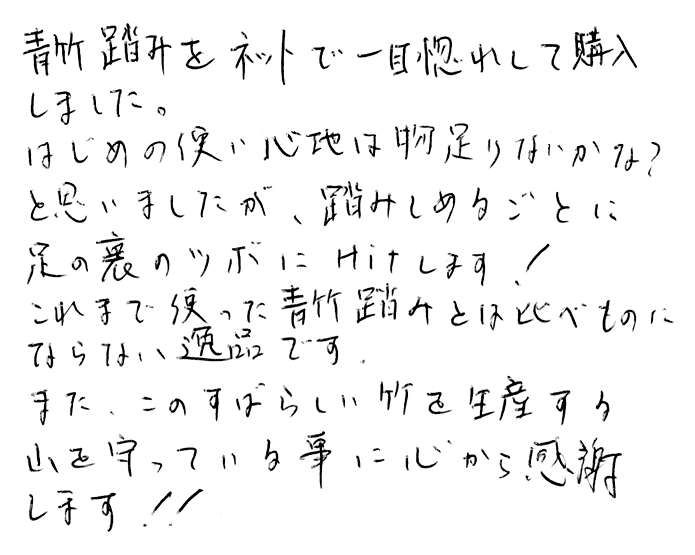 青竹踏みをネットで一目惚れして購入
しました。
はじめの使い心地は物足りないかな?
と思いましたが、踏みしめるごとに
足の裏のツボにHitします!
これまで使った青竹踏みとは比べものに
ならない逸品です.
また、このすばらしい竹を生産する
山を守っている事に心から感謝
します!!